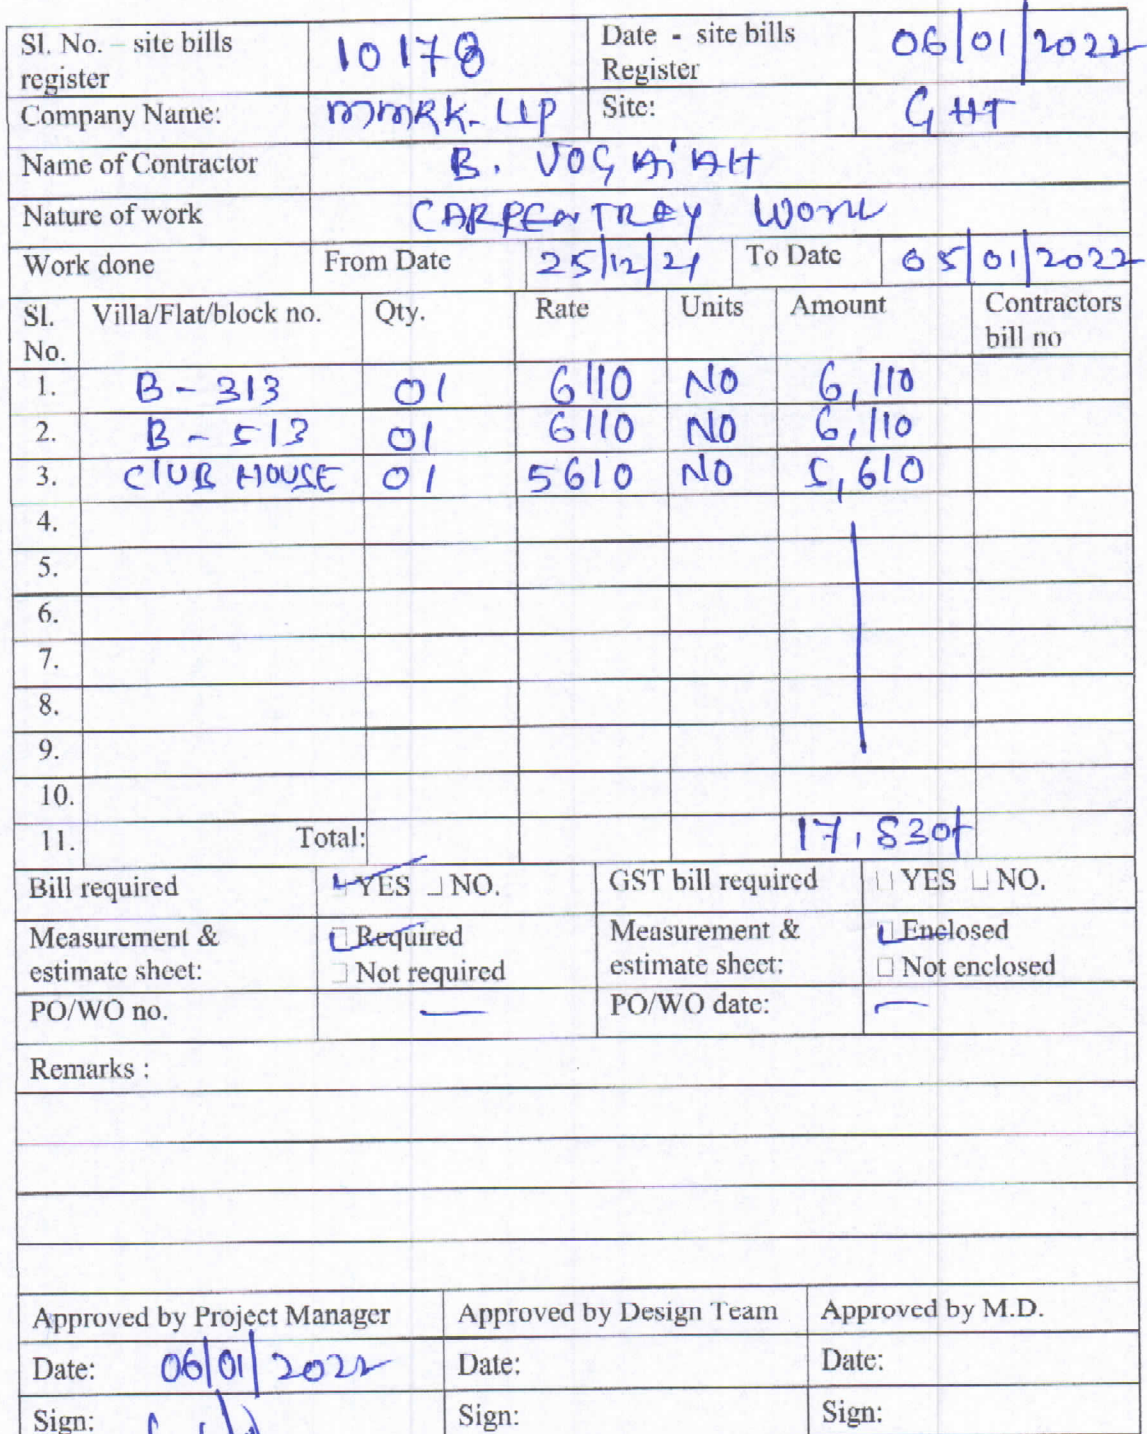 Sl. No. – site bills register 10178 Date - site bills Register 06/01/2022
Company Name: MMRK-LLP Site: GHT
Name of Contractor B. VOGAiAH
Nature of work CARPENTREY WORK
Work done From Date 25/12/21 To Date 05/01/2022
Sl. No. Villa/Flat/block no. Qty. Rate Units Amount Contractors bill no
1. B - 313 01 6110 NO 6,110
2. B - 513 01 6110 NO 6,110
3. CLUB HOUSE 01 5610 NO 5,610
4.
5.
6.
7.
8.
9.
10.
11. Total: 17,830/-
Bill required YES NO. GST bill required YES NO.
Measurement & estimate sheet: Required Not required Measurement & estimate sheet: Enclosed Not enclosed
PO/WO no. — PO/WO date: —
Remarks :
Approved by Project Manager Approved by Design Team Approved by M.D.
Date: 06/01/2022 Date: Date:
Sign: Sign: Sign: